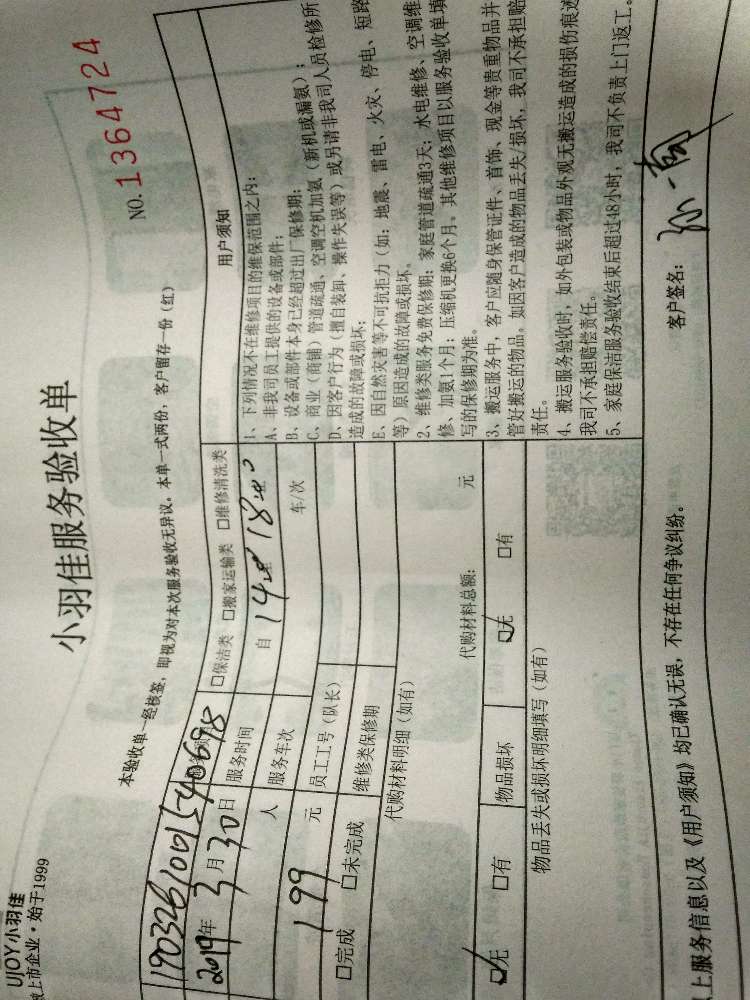 UJOY小羽佳
上市企业·始于1999
小羽佳服务验收单
NO.1364724
本验收单一经核签,即视为对本次服务验收无异议。本单一式两份,客户留存一份(红)
190326100154 0698
□保洁类 □搬家运输类 □维修清洗类
用户须知
2019年3月30日
服务时间
自 14 至 18
人
服务车次
车/次
199 元
员工工号(队长)
□完成 □未完成
维修类保修期
代购材料明细(如有)
代购材料总额: 元
☑无 □有
物品损坏
☑无 □有
物品丢失或损坏明细填写(如有)
1、下列情况不在维修项目的维保范围之内:
A、非我司员工提供的设备或部件;
B、设备或部件本身已经超过出厂保修期;
C、商业(商铺)管道疏通、空调空机加氨(新机或漏氨);
D、因客户行为(擅自装卸、操作失误等)或另请非我司人员检修所
造成的故障或损坏;
E、因自然灾害等不可抗拒力(如:地震、雷电、火灾、停电、短路
等)原因造成的故障或损坏。
2、维修类服务免费保修期:家庭管道疏通3天;水电维修、空调维
修、加氨1个月;压缩机更换6个月。其他维修项目以服务验收单填
写的保修期为准。
3、搬运服务中,客户应随身保管证件、首饰、现金等贵重物品并
管好搬运的物品。如因客户造成的物品丢失/损坏,我司不承担赔
责任。
4、搬运服务验收时,如外包装或物品外观无搬运造成的损伤痕迹
我司不承担赔偿责任。
5、家庭保洁服务验收结束后超过48小时,我司不负责上门返工。
上服务信息以及《用户须知》均已确认无误,不存在任何争议纠纷。
客户签名: